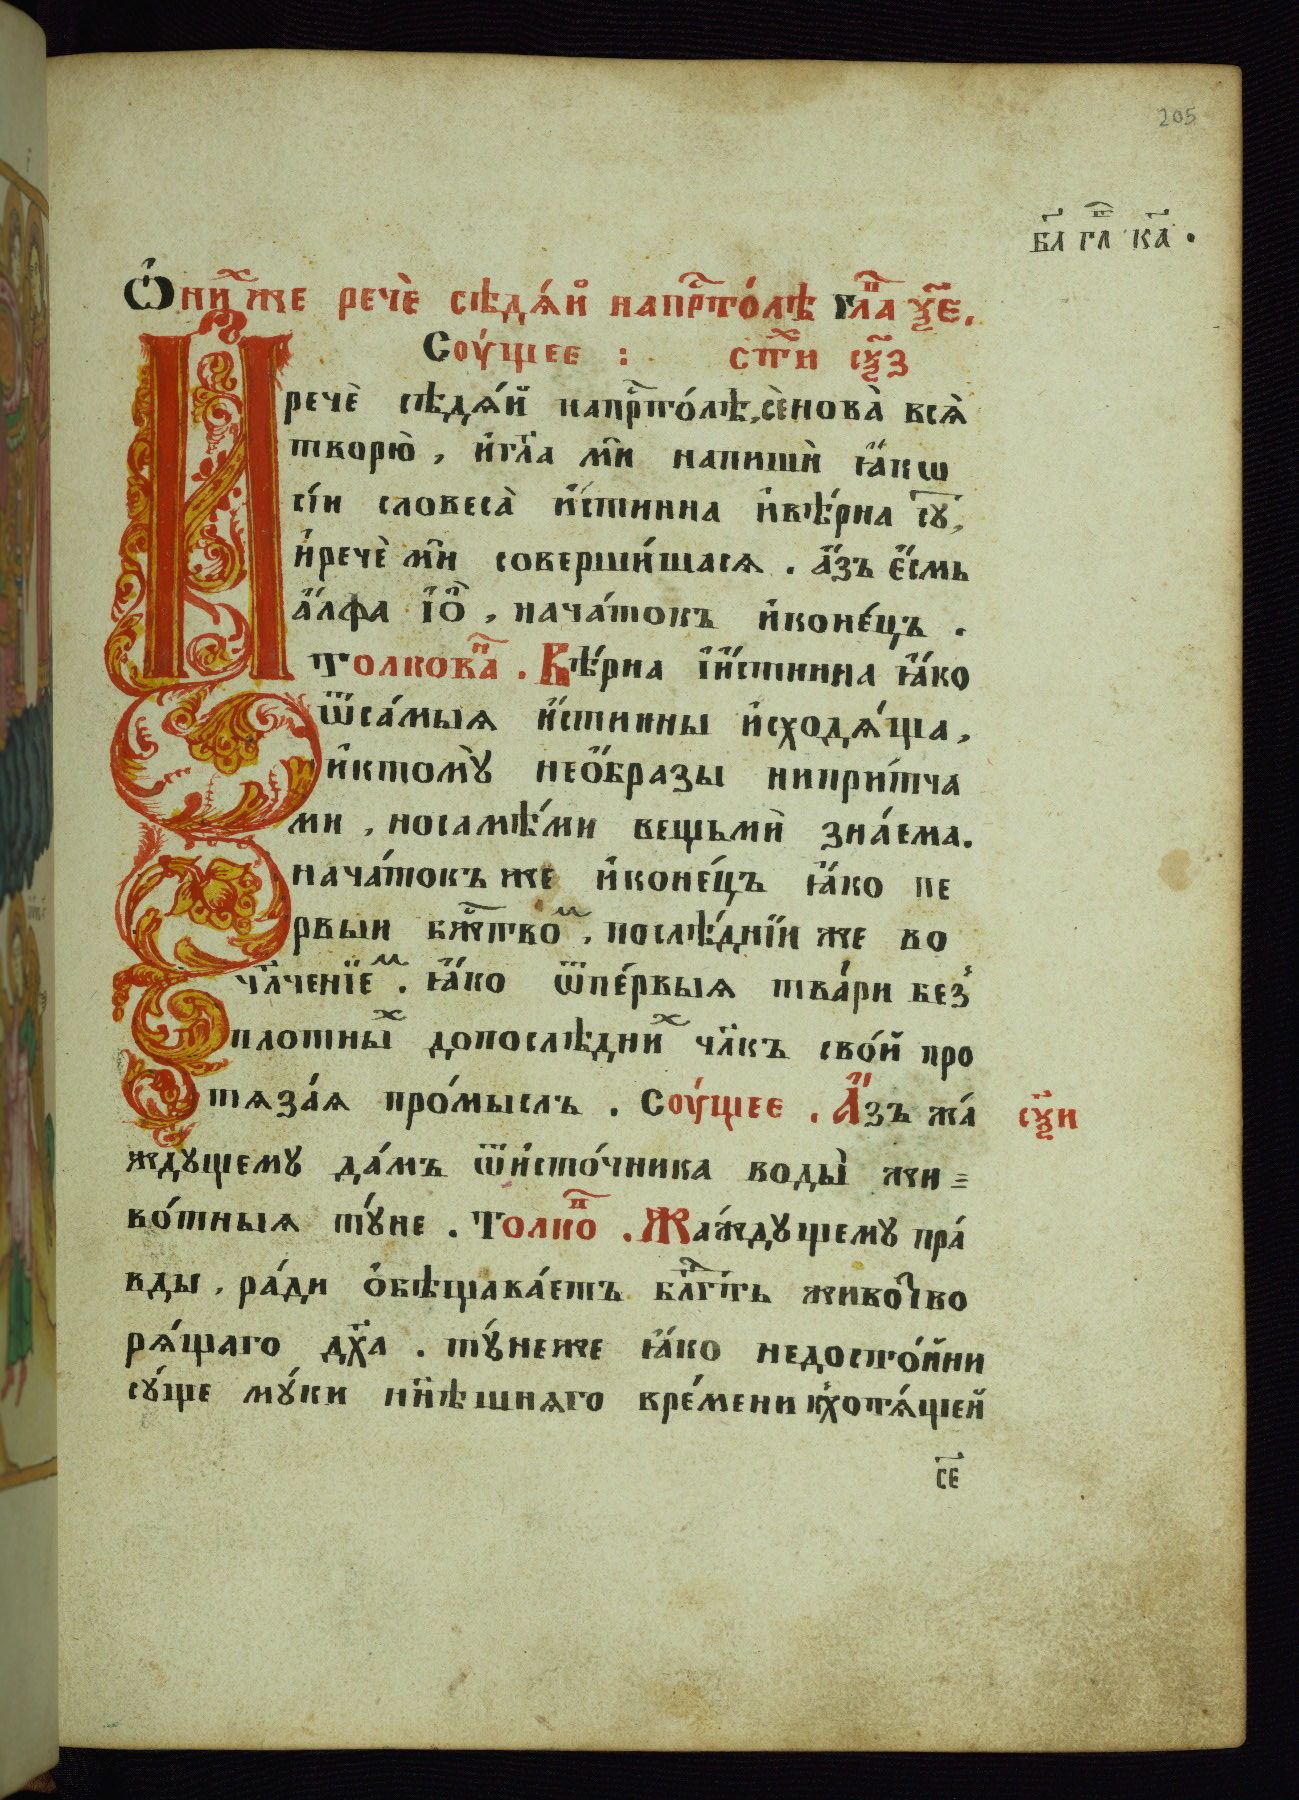 205
бл҃ гл҃ ка҃ .
Ѡ҆ ни́хже речѐ сѣдѧ́й напрⷭ҇то́лѣ гла҃ ѯ҃е.
Соу́щее : сти́хи сѯ҃з
И
речѐ сѣдѧ́й напрⷭ҇то́лѣ, сѐ нова̀ всѧ̀
творю̀, и҆гл҃а мѝ напишѝ ꙗ҆́кѡ
сі́и словеса̀ и҆́стинна и҆вѣ́рна сꙋ́ть,
и҆речѐ мѝ соверши́шасѧ . а҆́зъ є҆́смь
а҆́лфа і҆ѻ҆̀, нача́токъ и҆коне́цъ .
Толкова́нⷩ҇їе . Вѣ́рна і҆и҆́стинна ꙗ҆́ко
ѿса́мыѧ и҆́стинны и҆сходѧ́ща,
и҆ктомꙋ̀ нео҆́бразы нипри́тча
ми, носамѣ́ми вещьмѝ зна́ема.
нача́токъже и҆коне́цъ ꙗ҆́ко пе
рвыи бж҃тво́мъ, послѣ́днїи же во
чл҃ченїемъ . ꙗ҆́ко ѿпе́рвыѧ тва́ри без̾
плотны́х допослѣ́дних чл҃къ сво́й про
тѧза́ѧ про́мыслъ . Соу́щее . А҆́зъ жа́ сѯ҃и
ждущему да́мъ ѿи҆сто́чника воды̀ жи=
во́тныѧ тꙋ́не . Толко́в . Жа́ждущему пра́
вды, ра́ди о҆бѣщава́етъ блⷢ҇дть живо́тво
рѧ́щаго дх҃а . тꙋ́неже ꙗ҆́ко недосто́йни
сꙋ́ще мꙋ́ки нн҃ѣшнѧго вре́мени к̾хотѧ́щей
се҃